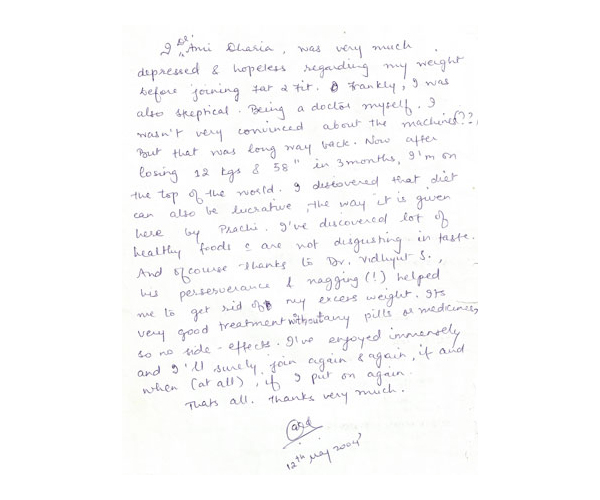 I "Dr." Ami Dharia, was very much
depressed & hopeless regarding my weight
before joining fat 2 fit. Frankly, I was
also skeptical. Being a doctor myself, I
wasn't very convinced about the machines??,
But that was long way back. Now after
losing 12 kgs & 58" in 3 months, I'm on
the top of the world. I discovered that diet
can also be lucrative, the way it is given
here by Prachi. I've discovered lot of
healthy foods c are not disgusting in taste.
And ofcourse thanks to Dr. Vidhyut S.,
his perserverance & nagging (!) helped
me to get rid of my excess weight. Its
very good treatment without any pills or medicines
so no side-effects. I've enjoyed immensely
and I'll surely join again & again, if and
when (at all), if I put on again.
Thats all. Thanks very much.
12th May 2004